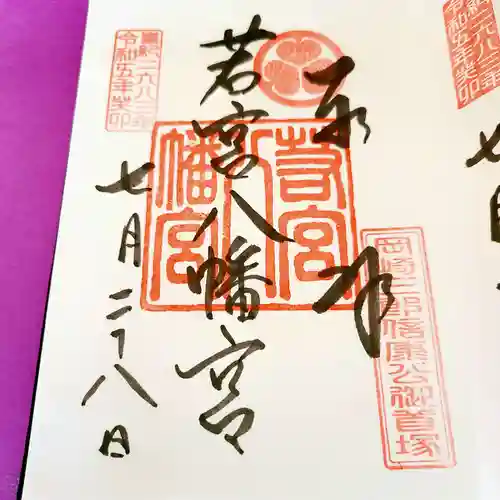 奉拝
岡崎三郎信康公御首塚
若宮八幡宮
若宮
八幡宮
七月二十八日
皇紀二六八三年
令和五年癸卯
皇紀二六八三年
令和五年癸卯
七月